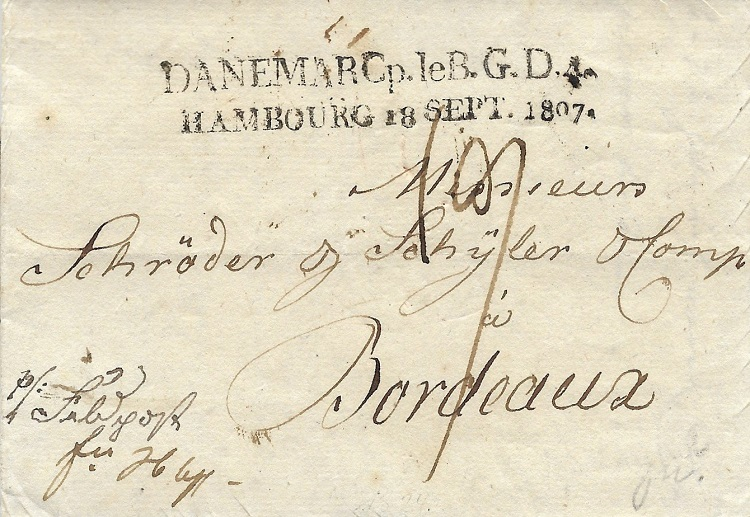 DANEMARC p. le B. G. D. 4.
HAMBOURG 18 SEPT. 1807.
Messieurs
Schröder & Schÿler & Comp
à
Bordeaux
p/: Feldpost